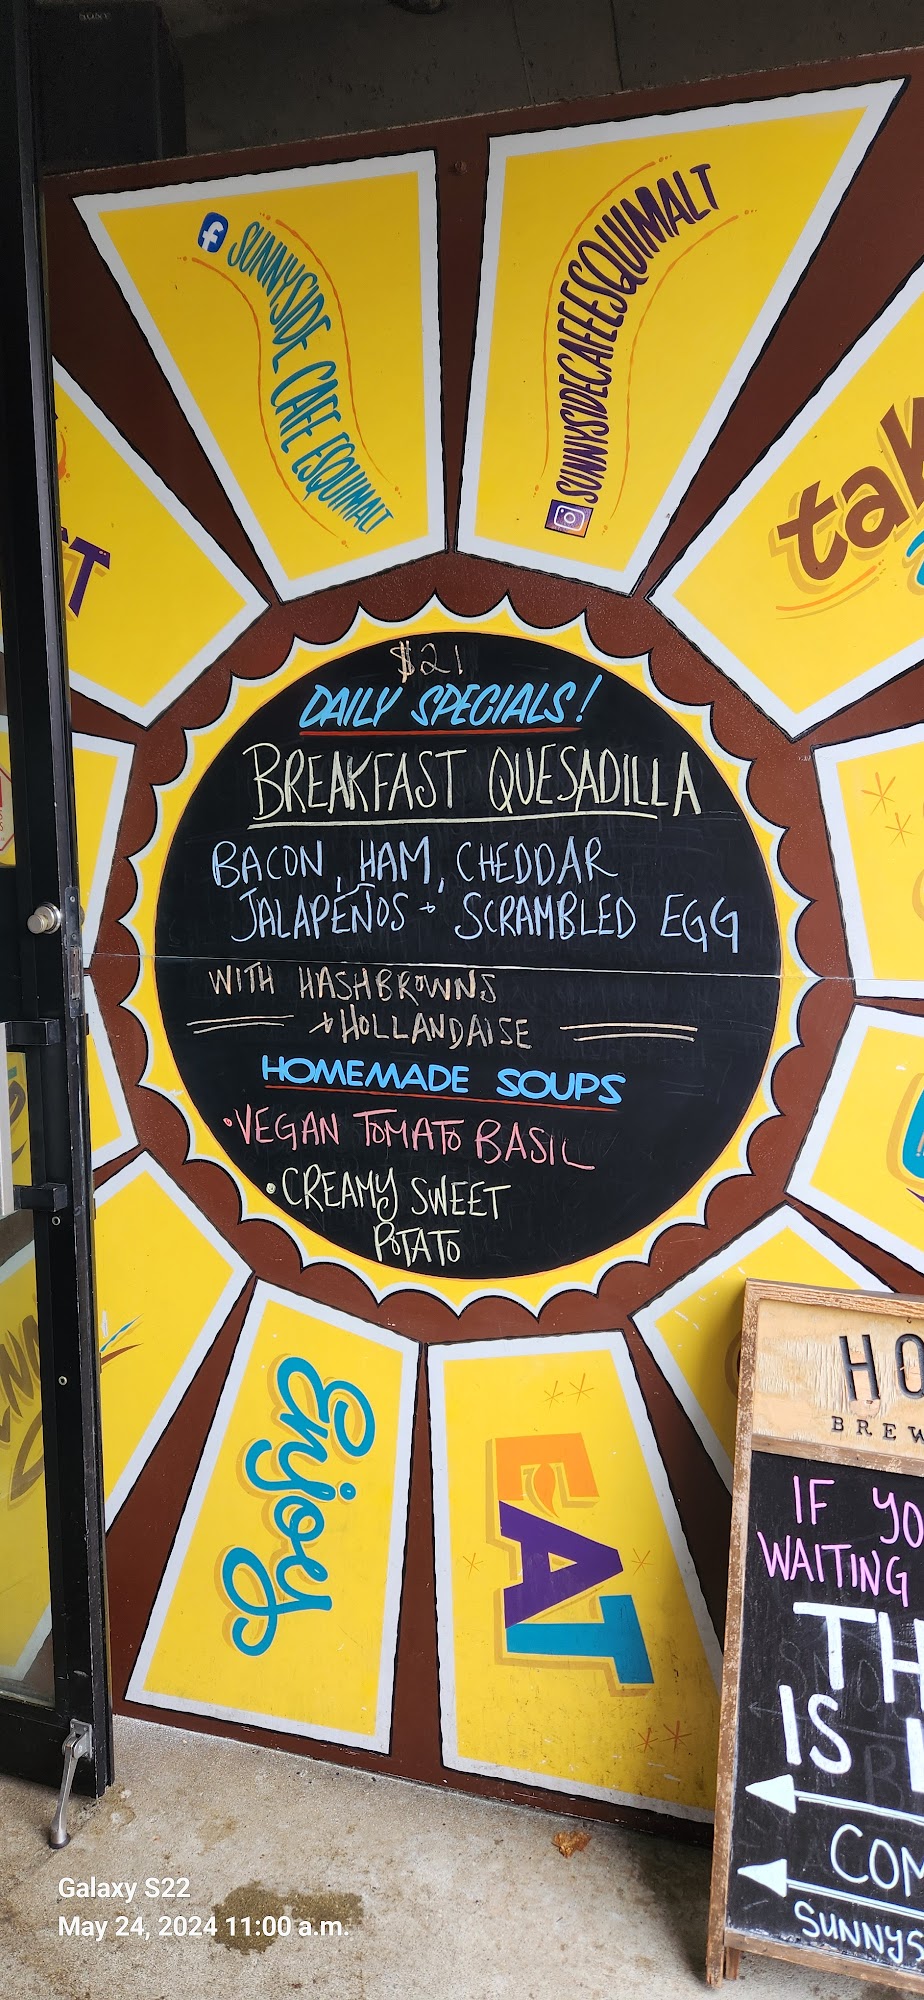 SONY
SUNNYSIDE CAFE ESQUIMALT
SUNNYSIDECAFEESQUIMALT
$21
DAILY SPECIALS!
BREAKFAST QUESADILLA
BACON, HAM, CHEDDAR
JALAPEÑOS + SCRAMBLED EGG
WITH HASHBROWNS
+ HOLLANDAISE
HOMEMADE SOUPS
•VEGAN TOMATO BASIL
•CREAMY SWEET
POTATO
Enjoy
EAT
HO
BREW
IF YO
WAITING
TH
IS
COM
SUNNYS
Galaxy S22
May 24, 2024 11:00 a.m.